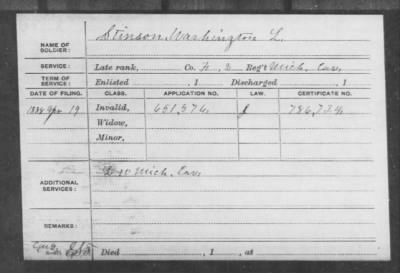 NAME OF SOLDIER: Stinson, Washington L.
SERVICE: Late rank, Co. F, 2 Reg't Mich. Cav.
TERM OF SERVICE: Enlisted , 1 Discharged , 1
DATE OF FILING. CLASS. APPLICATION NO. LAW. CERTIFICATE NO.
1888 Apr 19 Invalid, 651,576,
Widow,
Minor,
ADDITIONAL SERVICES: Mich. Cav.
REMARKS:
Died , 1 , at